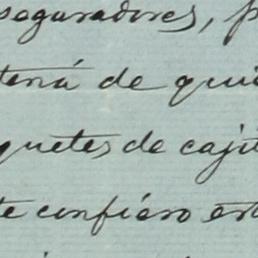 seguradores, p
tená de qui
quetes de caji
te confiero est